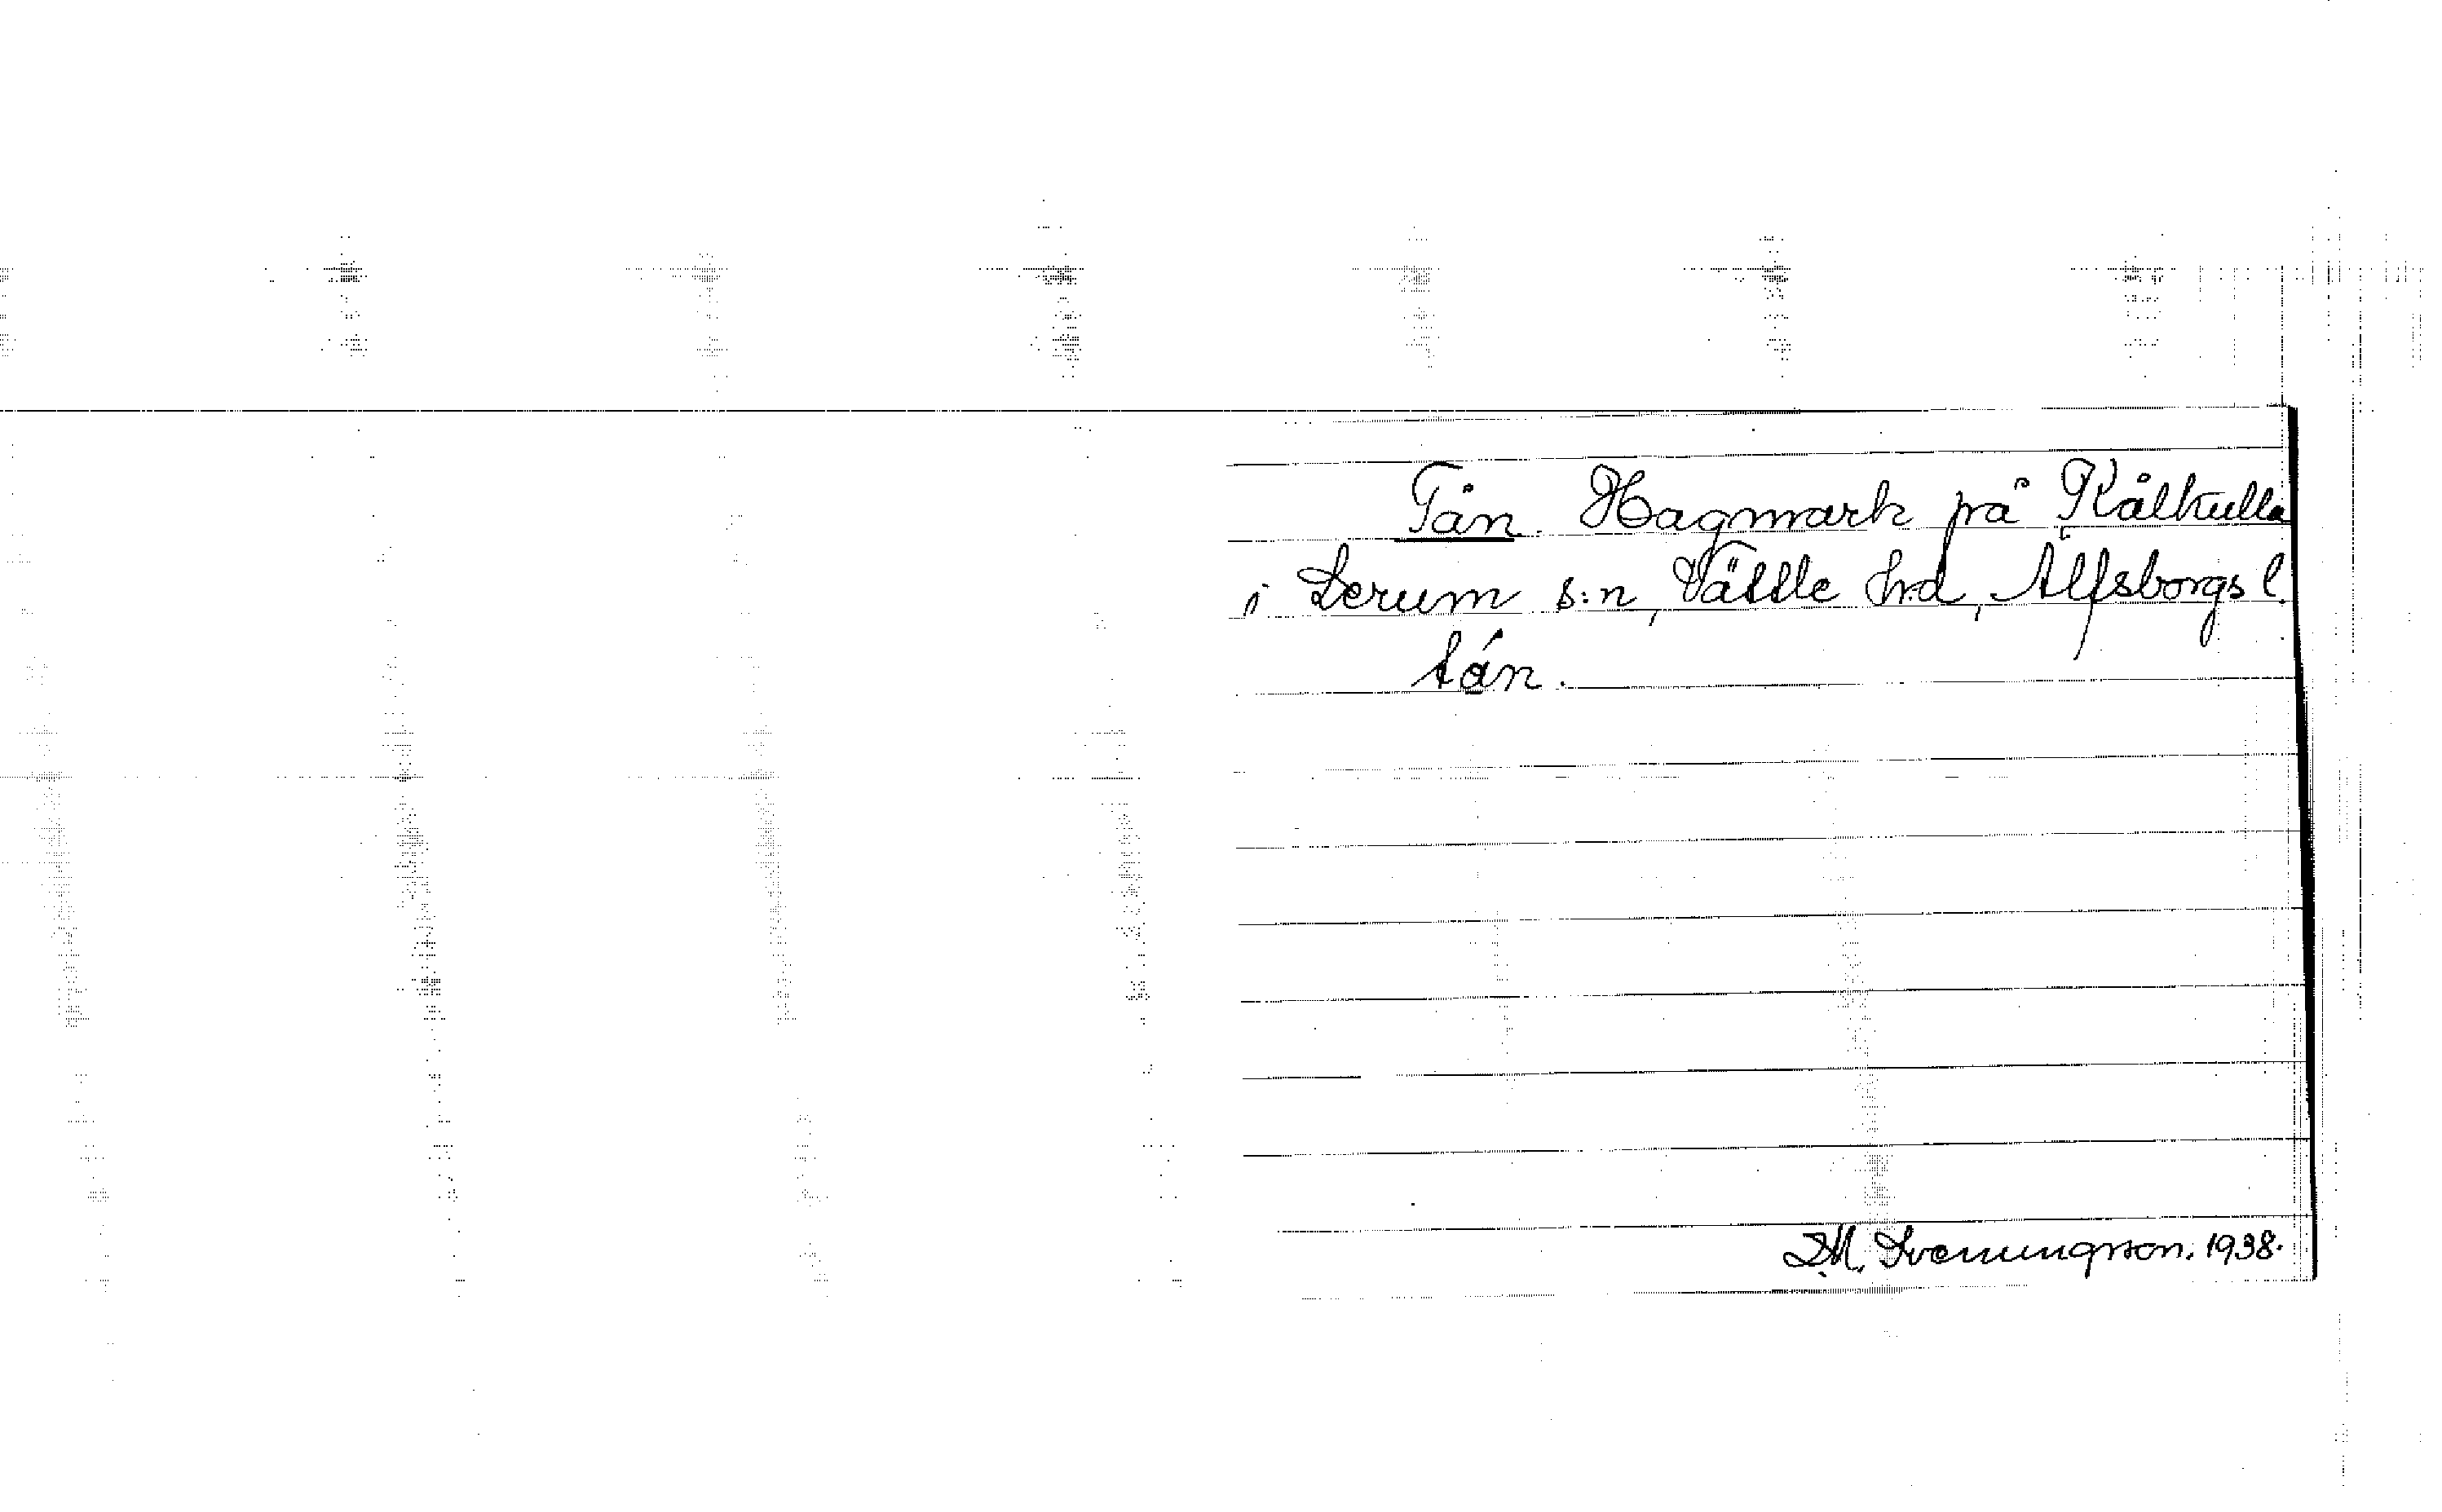 Tån. Hagmark på Kålkulla
i Lerum s:n, Vättle hrd, Älfsborgs l.
tán.
D.M. Svenungsson. 1938.